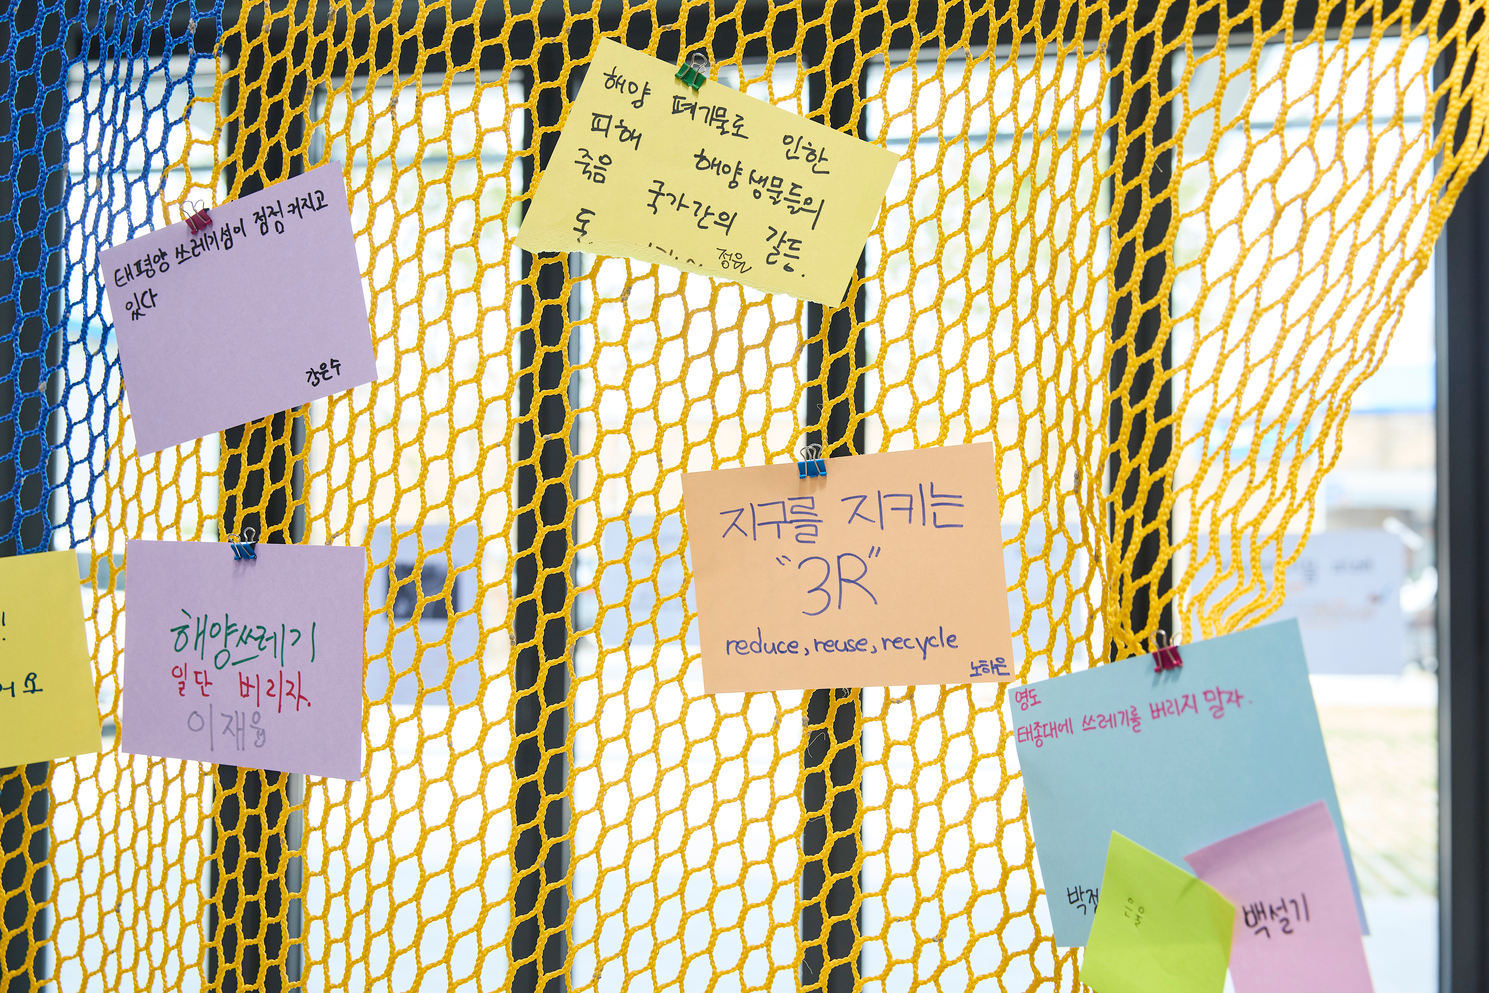 해양 폐기물로 인한
피해 해양생물들의
죽음 국가간의 갈등.
정원
태평양 쓰레기섬이 점점 커지고
있다
강은수
해양쓰레기
일단 버리자.
이재용
지구를 지키는
"3R"
reduce, reuse, recycle
노하은
영도
태종대에 쓰레기를 버리지 말자.
백설기